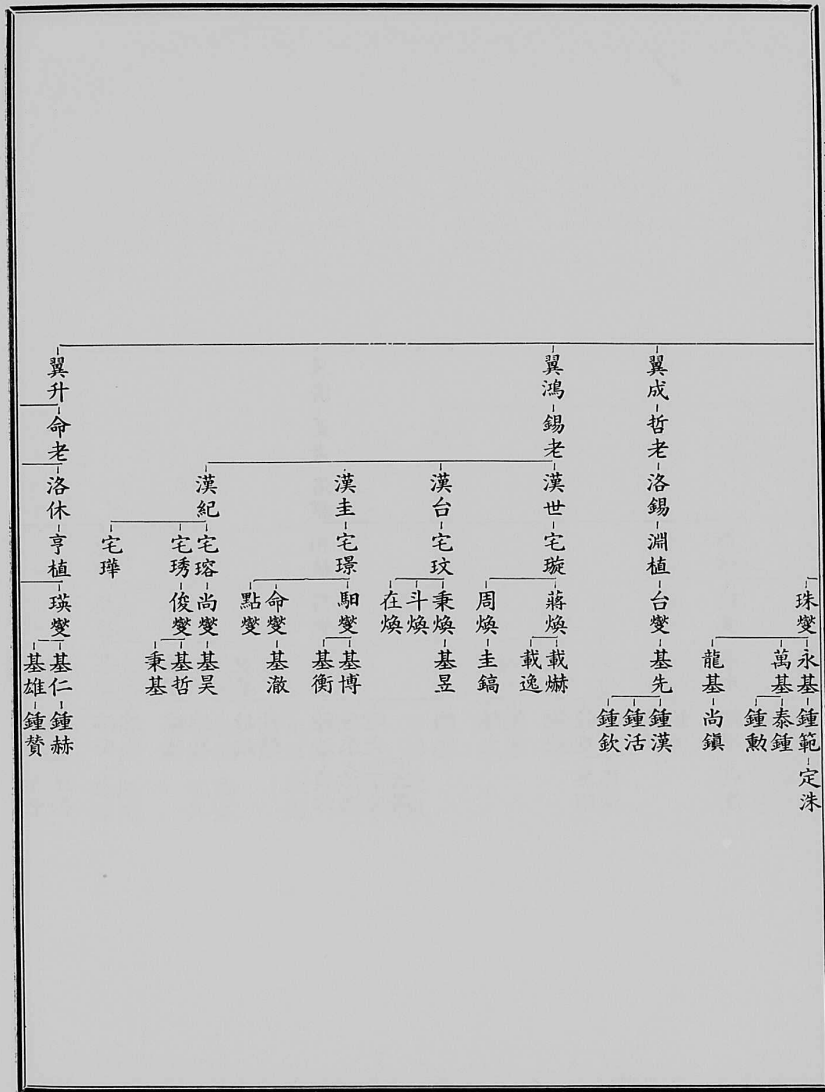 珠燮 永基 鍾範 定洙
萬基 泰鍾
鍾勳
龍基 尚鎭
翼成 哲老 洛錫 淵植 台燮 基先 鍾漢
鍾活
鍾欽
翼鴻 錫老 漢世 宅璇 蔣煥 載爀
載逸
周煥 圭鎬
漢台 宅玟 秉煥 基昱
斗煥
在煥
漢圭 宅璟 馹燮 基博
基衡
命燮 基澈
點燮
漢紀 宅瑢 尚燮 基昊
宅琇 俊燮 基哲
秉基
宅璍
翼升 命老 洛休 亨植 瑛燮 基仁 鍾赫
基雄 鍾贊